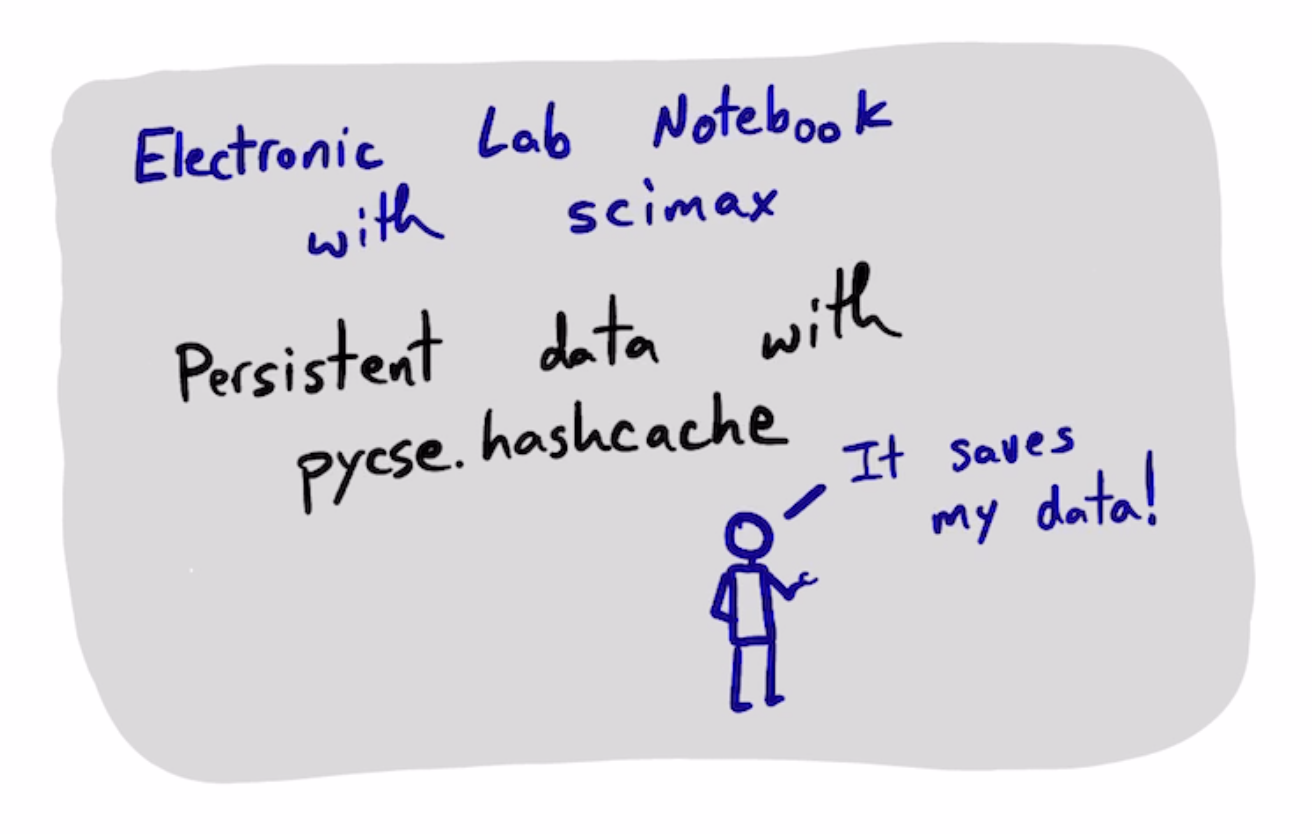 Electronic Lab Notebook
with scimax
Persistent data with
pycse.hashcache
It saves
my data!